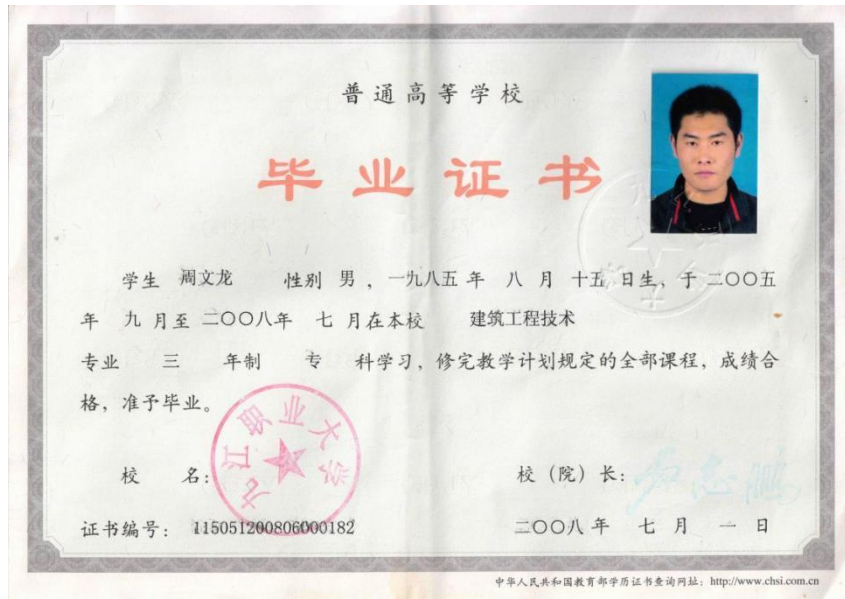 普通高等学校
毕业证书
学生 周文龙 性别 男 ，一九八五 年 八 月 十五 日生，于 二〇〇五
年 九 月至 二〇〇八年 七 月在本校 建筑工程技术
专业 三 年制 专 科学习，修完教学计划规定的全部课程，成绩合
格，准予毕业。
九江职业大学
校 名：
校（院）长：
证书编号： 115051200806000182
二〇〇八 年 七 月 一 日
中华人民共和国教育部学历证书查询网址：http://www.chsi.com.cn